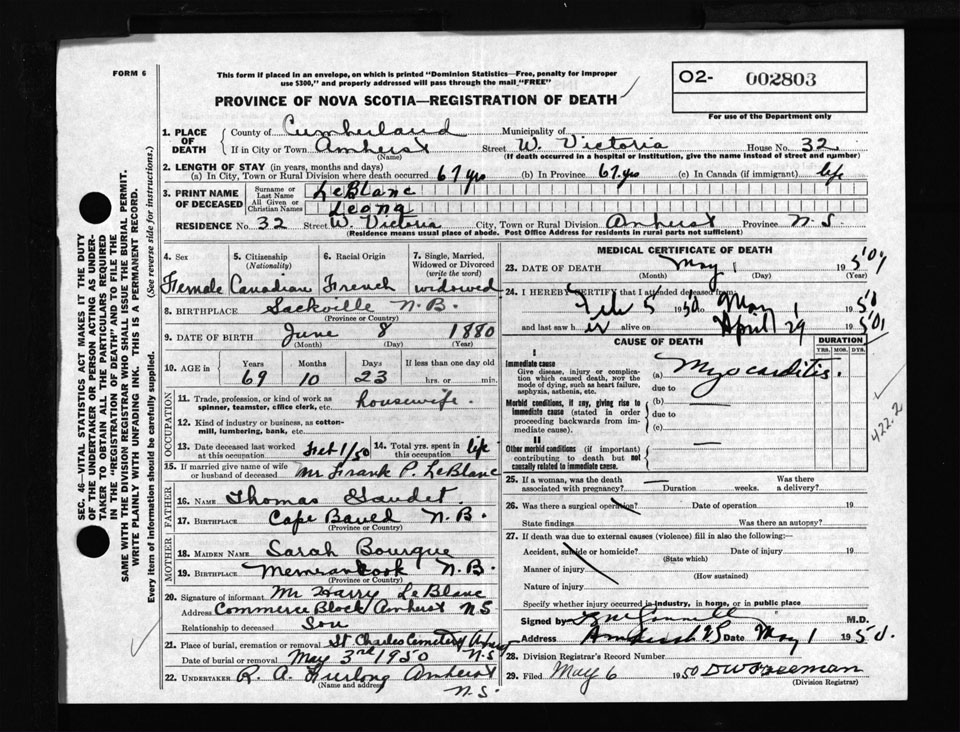 FORM 6
This form if placed in an envelope, on which is printed "Dominion Statistics—Free, penalty for improper
use $300," and properly addressed will pass through the mail "FREE"
PROVINCE OF NOVA SCOTIA—REGISTRATION OF DEATH
O2- 002803
For use of the Department only
SEC. 46—VITAL STATISTICS ACT MAKES IT THE DUTY
OF THE UNDERTAKER OR PERSON ACTING AS UNDER-
TAKER TO OBTAIN ALL THE PARTICULARS REQUIRED
IN THE "REGISTRATION OF DEATH" AND TO FILE THE
SAME WITH THE DIVISION REGISTRAR WHO SHALL ISSUE THE BURIAL PERMIT.
WRITE PLAINLY WITH UNFADING INK. THIS IS A PERMANENT RECORD.
Every item of information should be carefully supplied. (See reverse side for instructions.)
1. PLACE OF DEATH
County of Cumberland Municipality of
If in City or Town Amherst Street W. Victoria House No. 32
(Name) (If death occurred in a hospital or institution, give the name instead of street and number)
2. LENGTH OF STAY (in years, months and days)
(a) In City, Town or Rural Division where death occurred 67 yrs (b) In Province 67 yrs (c) In Canada (if immigrant) life
3. PRINT NAME OF DECEASED
Surname or Last Name LeBlanc
All Given or Christian Names Leona
RESIDENCE No. 32 Street W. Victoria City, Town or Rural Division Amherst Province N.S.
(Residence means usual place of abode. Post Office Address for residents in rural parts not sufficient)
4. Sex Female
5. Citizenship (Nationality) Canadian
6. Racial Origin French
7. Single, Married, Widowed or Divorced (write the word) widowed
8. BIRTHPLACE Sackville N.B.
(Province or Country)
9. DATE OF BIRTH June 8 1880
(Month) (Day) (Year)
10. AGE in Years Months Days If less than one day old
69 10 23 hrs. or min.
OCCUPATION
11. Trade, profession, or kind of work as
spinner, teamster, office clerk, etc. housewife.
12. Kind of industry or business, as cotton-
mill, lumbering, bank, etc.
13. Date deceased last worked at this occupation Feb 1/50
14. Total yrs. spent in this occupation life
15. If married give name of wife or husband of deceased Mr Frank P. LeBlanc
FATHER
16. NAME Thomas Gaudet.
17. BIRTHPLACE Cape Bauld N.B.
(Province or Country)
MOTHER
18. MAIDEN NAME Sarah Bourque
19. BIRTHPLACE Memramcook N.B.
(Province or Country)
20. Signature of informant Mr Harry LeBlanc
Address Commerce Block Amherst N.S
Relationship to deceased Son
21. Place of burial, cremation or removal St Charles Cemetery Amherst N.S
Date of burial or removal May 3rd 1950
22. UNDERTAKER R. A. Furlong Amherst
(Name and address)
N.S.
MEDICAL CERTIFICATE OF DEATH
23. DATE OF DEATH May 1 1950
(Month) (Day) (Year)
24. I HEREBY CERTIFY that I attended deceased from
Feb 5 1950 to May 1 1950
and last saw her alive on April 29 1950
CAUSE OF DEATH
DURATION
YRS. MOS. DYS.
I
Immediate cause
Give disease, injury or complica-
tion which caused death, NOT the
mode of dying, such as heart failure,
asphyxia, asthenia, etc.
(a) Myocarditis.
due to
Morbid conditions, if any, giving rise to
immediate cause (stated in order
proceeding backwards from im-
mediate cause).
(b)
due to
(c)
II
Other morbid conditions (if important)
contributing to death but not
causally related to immediate cause.
422.2
25. If a woman, was the death
associated with pregnancy? Duration weeks. Was there a delivery?
26. Was there a surgical operation? Date of operation 19
State findings Was there an autopsy?
27. If death was due to external causes (violence) fill in also the following:—
Accident, suicide or homicide? Date of injury 19
(State which)
Manner of injury
(How sustained)
Nature of injury
Specify whether injury occurred in industry, in home, or in public place
Signed by M.D.
Address Amherst N.S. Date May 1 1950.
28. Division Registrar's Record Number
29. Filed May 6 1950 DW Freeman
(Division Registrar)